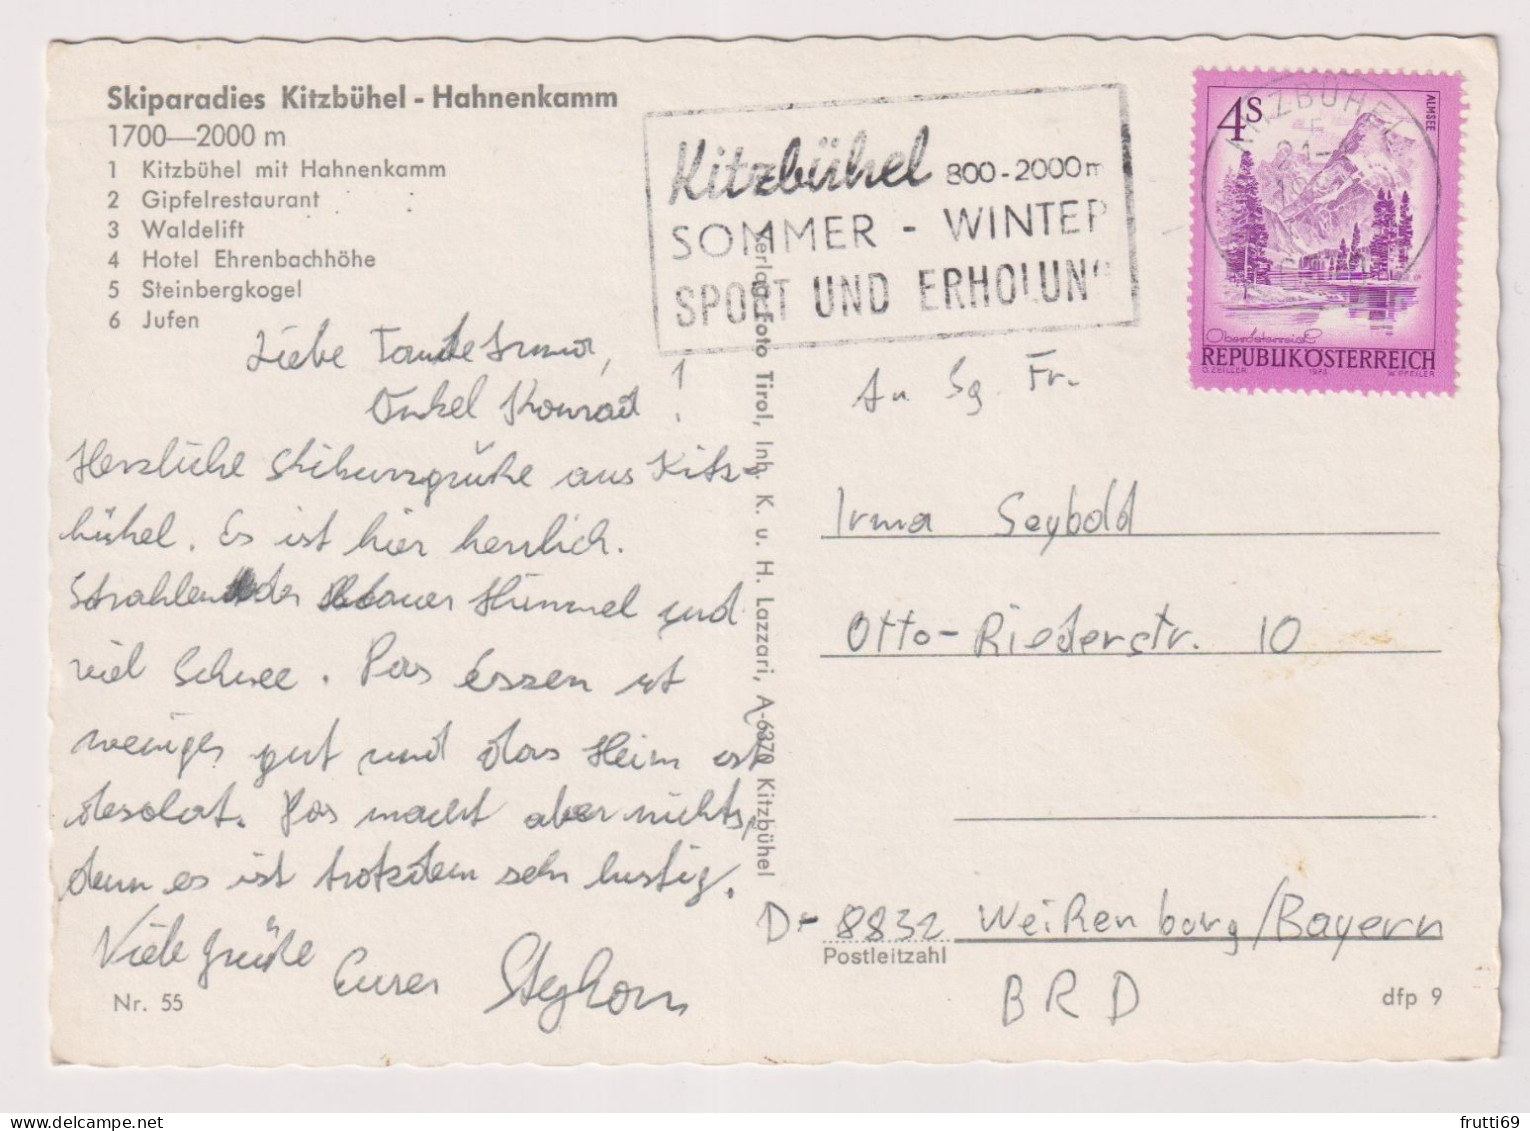 Skiparadies Kitzbühel - Hahnenkamm
1700—2000 m
1 Kitzbühel mit Hahnenkamm
2 Gipfelrestaurant
3 Waldelift
4 Hotel Ehrenbachhöhe
5 Steinbergkogel
6 Jufen
Liebe Tante Irma,
Onkel Konrad !
Herzliche Skikursgrüße aus Kitz-
bühel. Es ist hier herrlich.
Strahlender blauer Himmel und
viel Schnee. Das Essen ist
weniger gut und das Heim ist
desolat. Das macht aber nichts,
denn es ist trotzdem sehr lustig.
Viele Grüße Euer Stephan
Nr. 55
Verlag Foto Tirol, Inh. K. u. H. Lazzari, A-6370 Kitzbühel
Kitzbühel 800-2000m
SOMMER - WINTER
SPORT UND ERHOLUNG
KITZBÜHEL
4S
ALMSEE
Oberösterreich
REPUBLIK ÖSTERREICH
O. ZEILLER 1973 W. PFEILER
An Sg. Fr.
Irma Seybold
Otto-Riederstr. 10
D-8832 Weißenburg/Bayern
Postleitzahl
BRD
dfp 9
frutti69